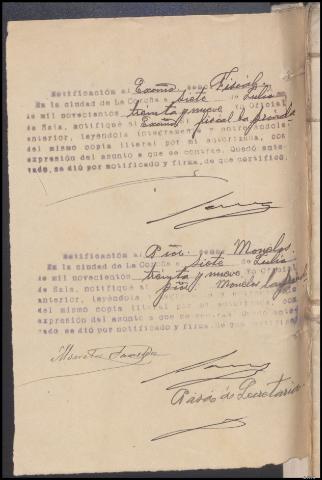 Notificación al Excmo. señor Fiscal
En la ciudad de La Coruña a siete de Julio
de mil novecientos treinta y nueve yo Oficial
de Sala, notifiqué al Excmo. Fiscal la
anterior, leyéndola íntegramente y entregándole
del mismo copia literal por mi autorizada, con
expresión del asunto a que se contrae. Quedó ente-
rado, se dió por notificado y firma, de que certifico.
Notificación al señor Monelos
En la ciudad de La Coruña a siete de Julio
de mil novecientos treinta y nueve, yo Oficial
de Sala, notifiqué al Monelos la
anterior, leyéndola íntegramente y entregándole
del mismo copia literal por mi autorizada, con
expresión del asunto a que se contrae. Quedó ente-
rado se dió por notificado y firma, de que certifico
Secretaría